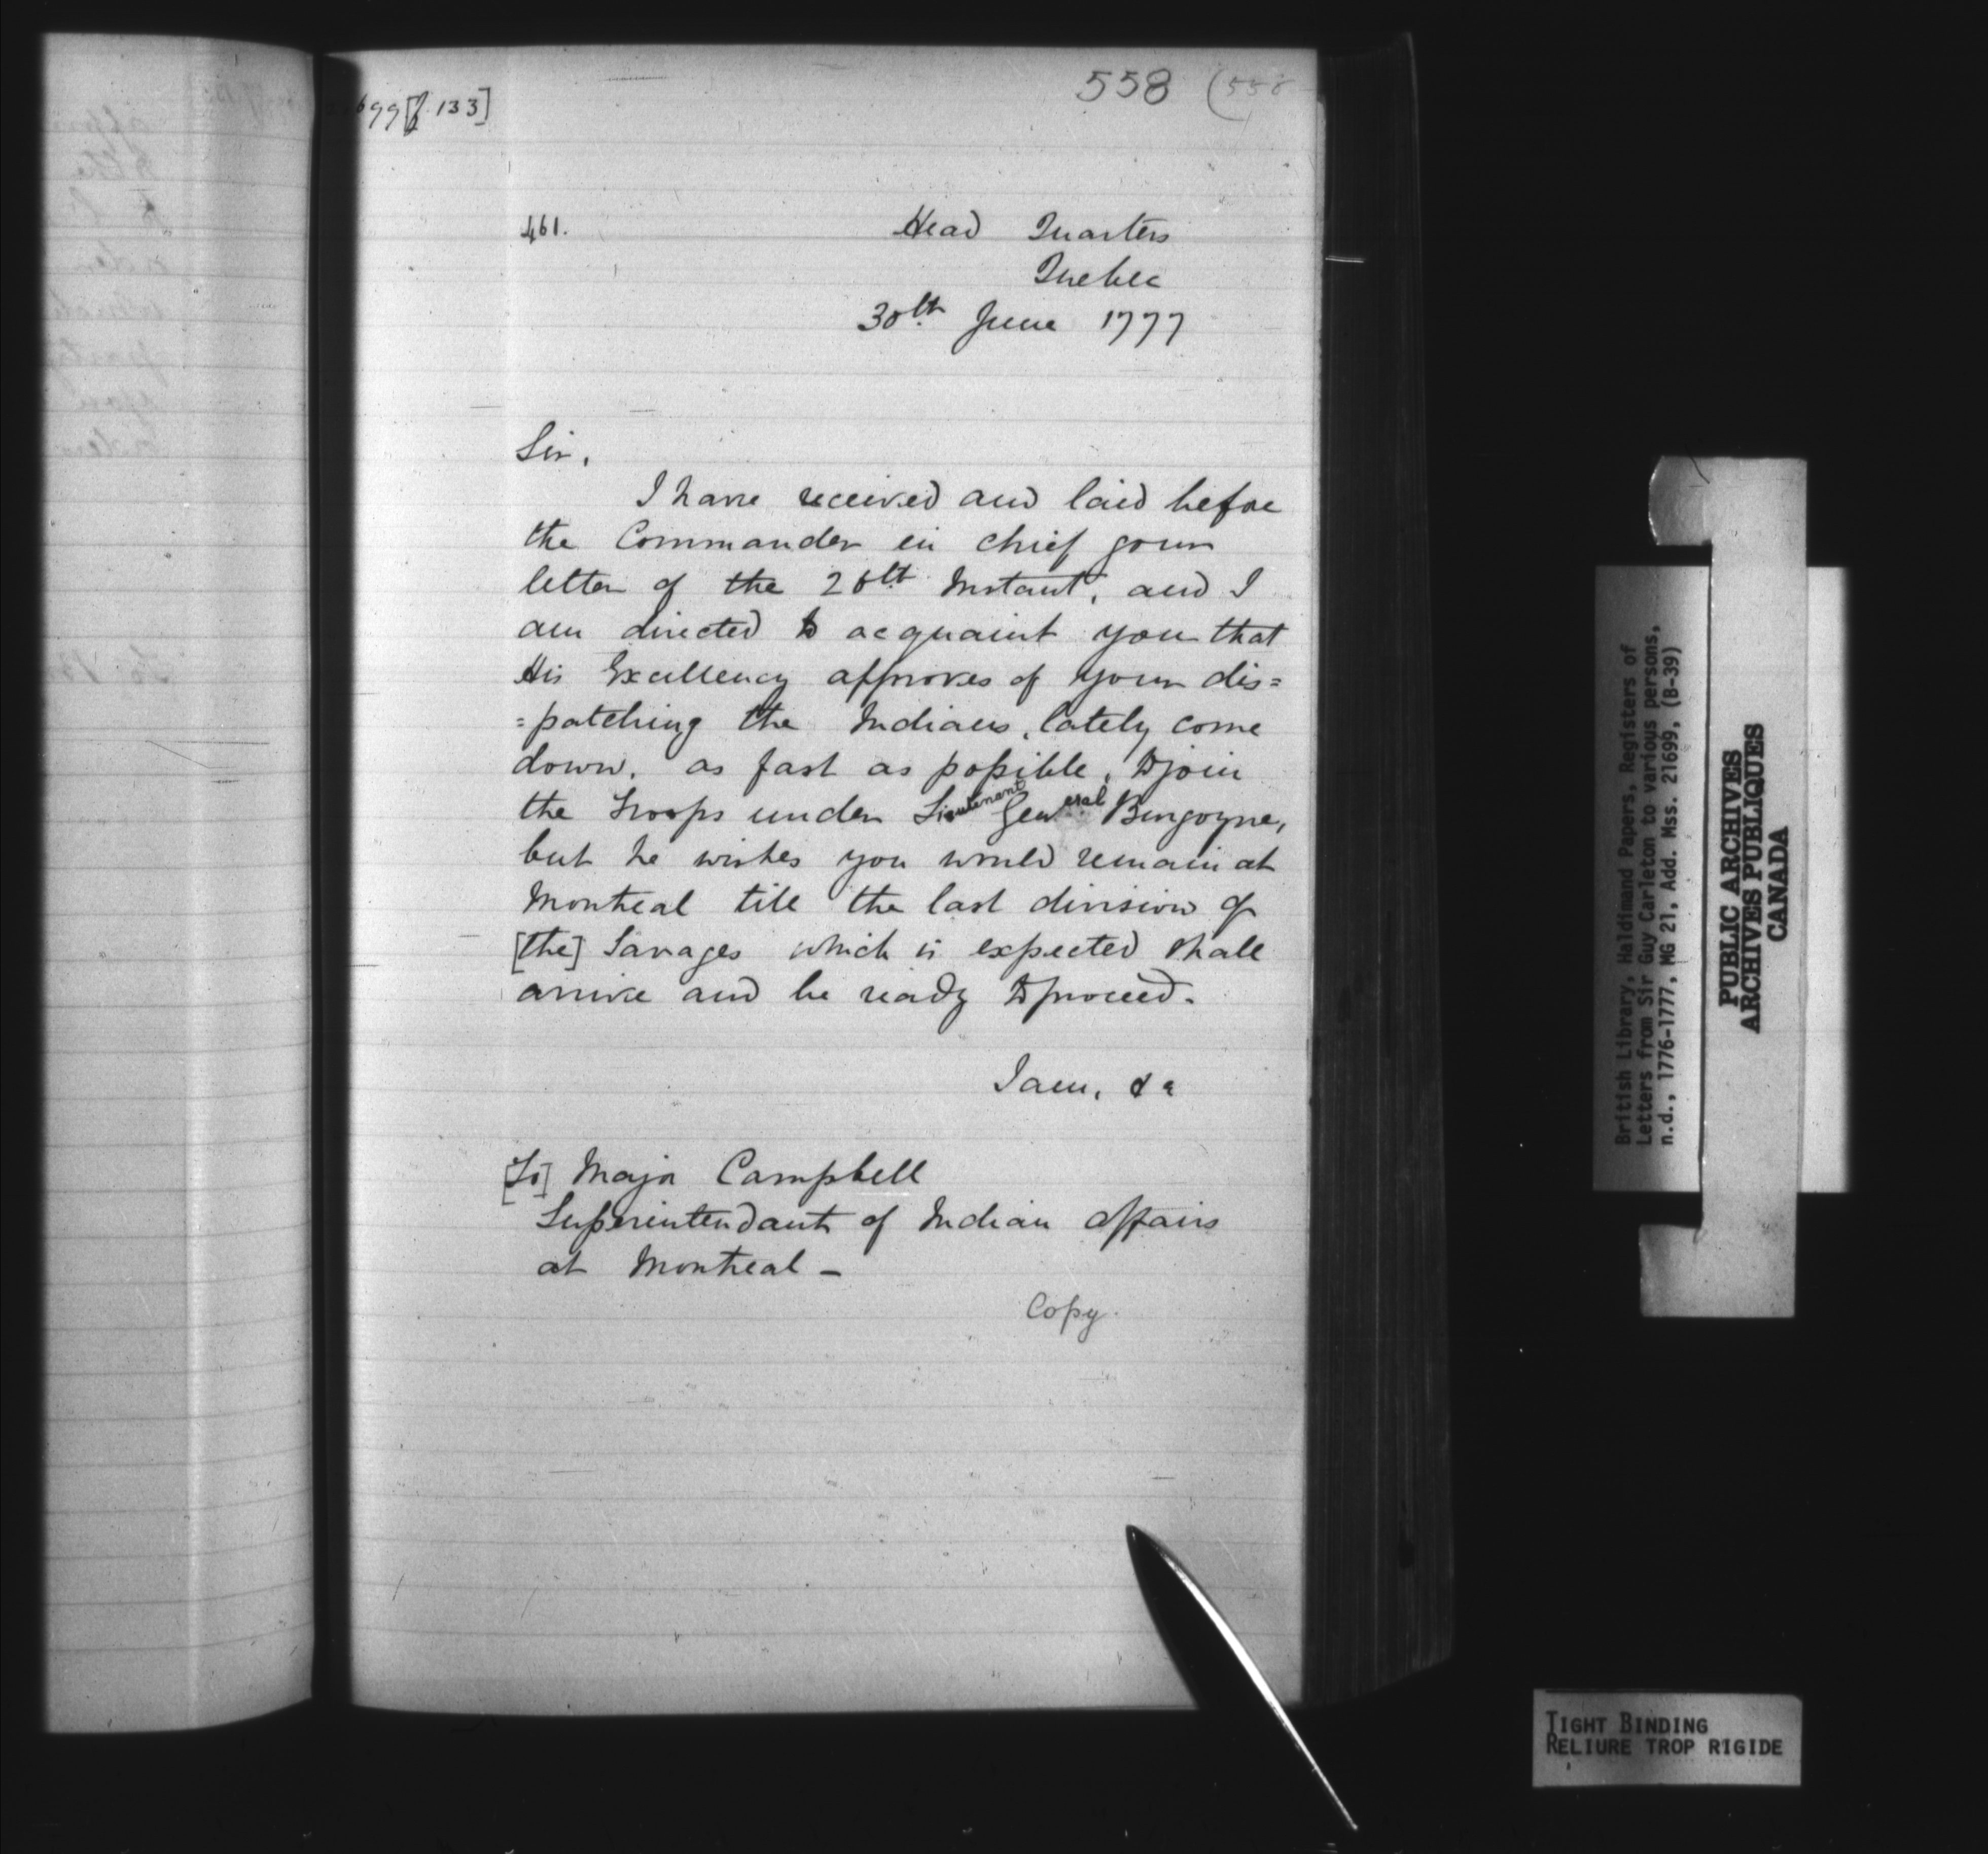 699 [f. 133]
558 (558
461.
Head Quarters
Quebec
30th June 1777
Sir,
I have received and laid before
the Commander in chief your
letter of the 26th Instant, and I
am directed to acquaint you that
His Excellency approves of your dis=
=patching the Indians, lately come
down, as fast as possible, to join
the Troops under Lieutenant General Burgoyne,
but he wishes you would remain at
Montreal till the last division of
[the] Savages which is expected shall
arrive and be ready to proceed.
I am, &a
[To] Major Campbell
Superintendant of Indian Affairs
at Montreal -
Copy.
British Library, Haldimand Papers, Registers of
Letters from Sir Guy Carleton to various persons,
n.d., 1776-1777, MG 21, Add. Mss. 21699, (B-39)
PUBLIC ARCHIVES
ARCHIVES PUBLIQUES
CANADA
TIGHT BINDING
RELIURE TROP RIGIDE